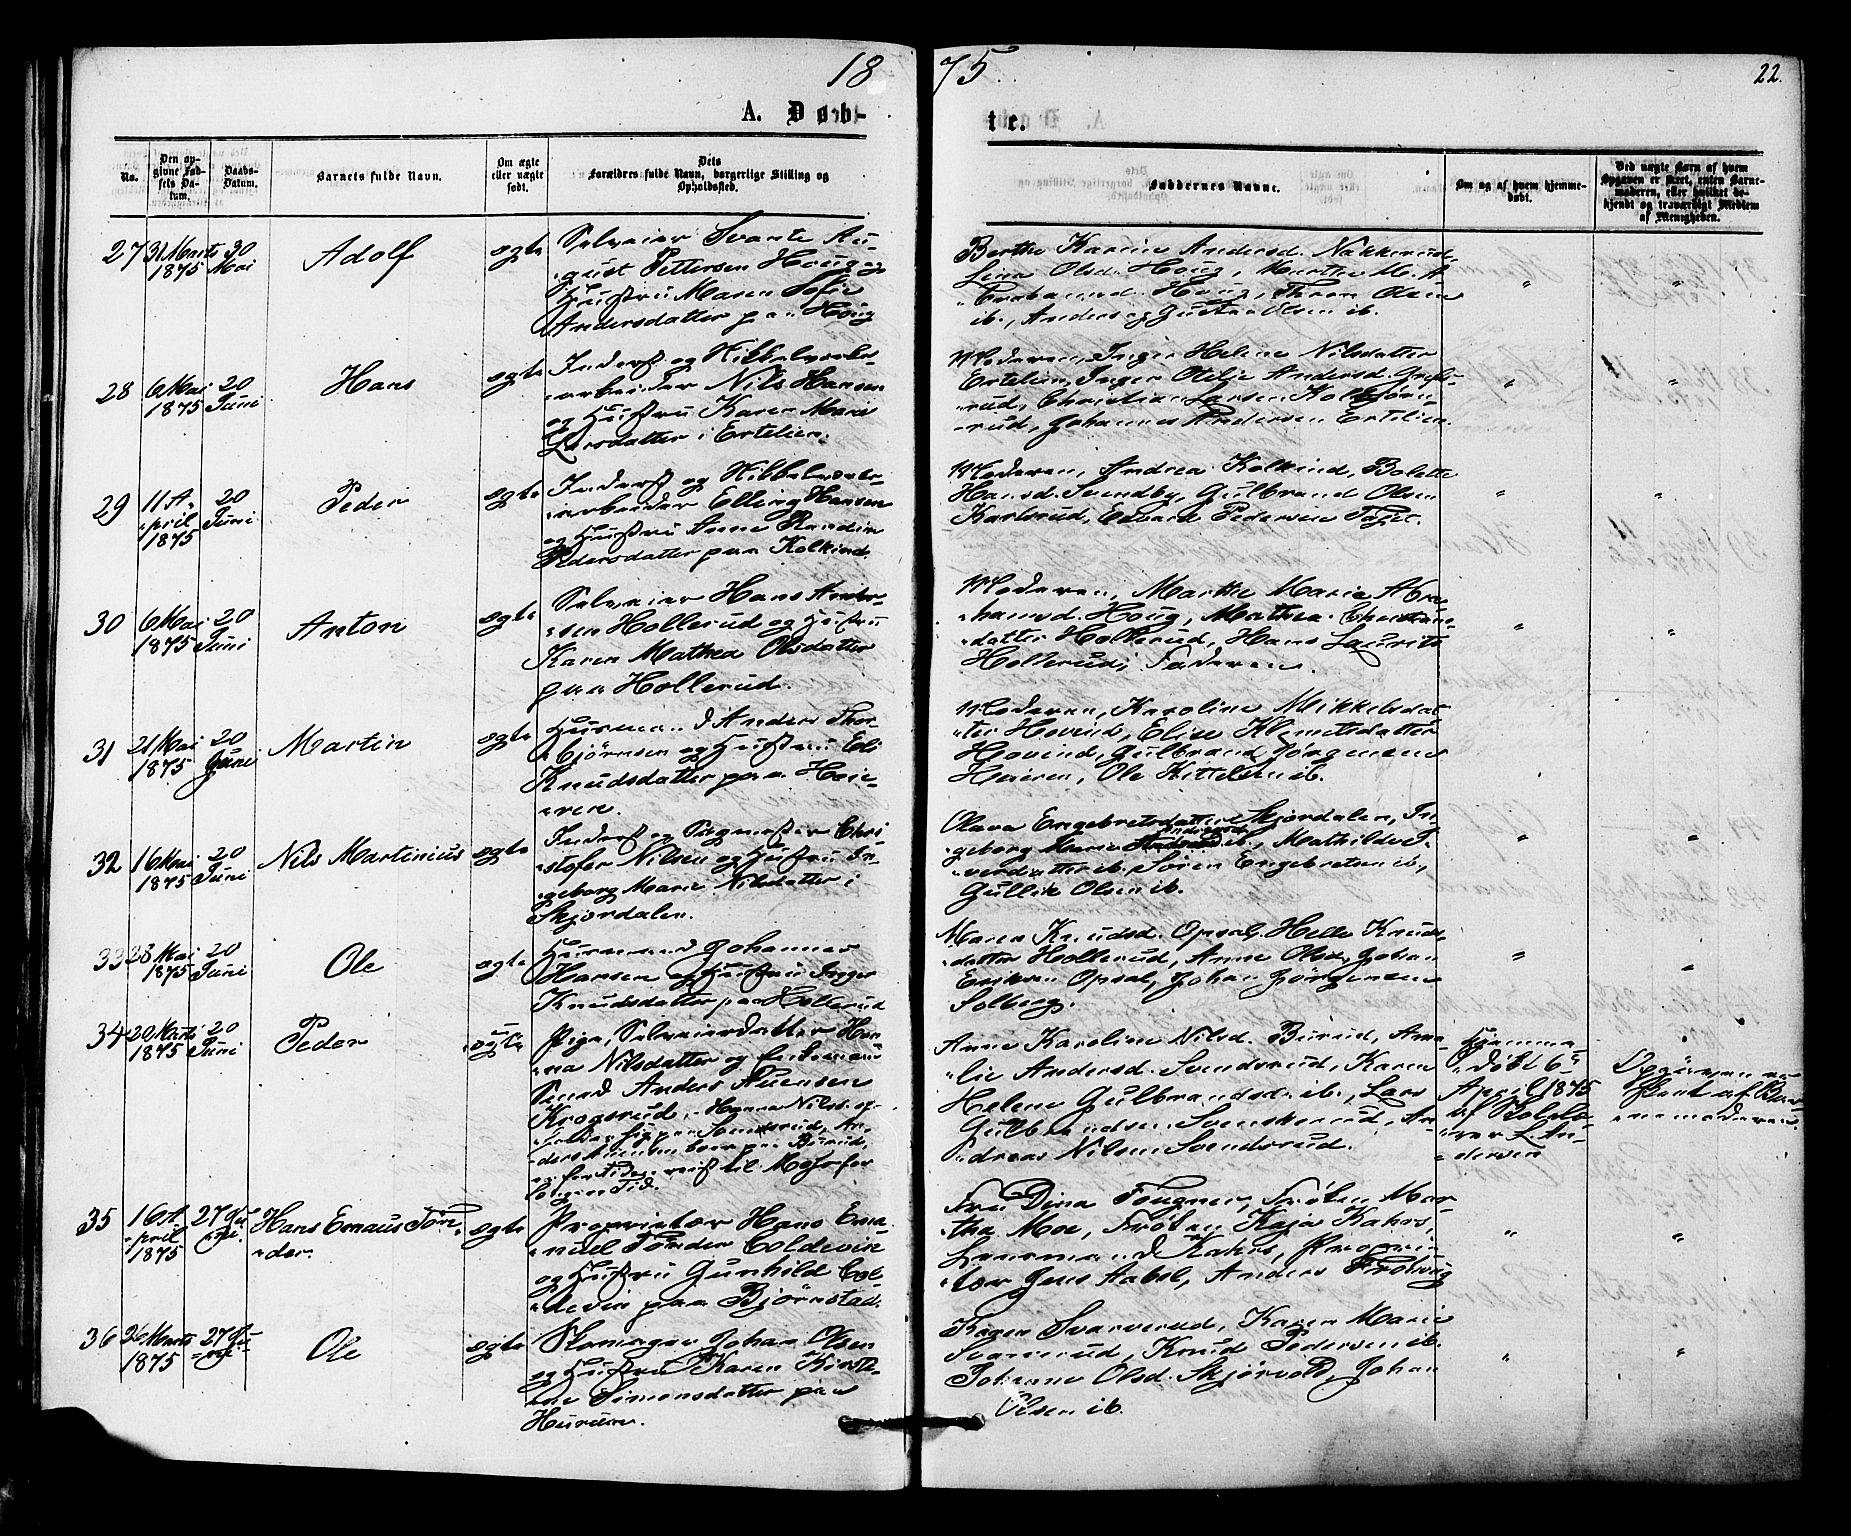 1875
22.
A. Døbte.
No.
Den opgivne Fødsels Datum.
Daabs-Datum.
Barnets fulde Navn.
Om ægte eller uægte født.
Dets Forældres fulde Navn, borgerlige Stilling og Opholdssted.
Faddernes Navne.
Om og af hvem hjemmedøbt.
Ved uægte Børn af hvem Opgaven er skeet, enten Barnemoderen, eller hvilket bekjendt og troværdigt Medlem af Menigheden.
27
31 Marts
1875
30
Mai
Adolf
egte
Selveier Svante Au-
gust Pettersen Houg og
Hustru Maren Sofie
Andersdatter paa Houg
Berthe Karine Andersd. Nakkerud,
Lina Olsd. Houg, Marthe M. A
Houg, Thron Olsen
ib., Anders og Gustav Olsen ib.
"
"
28
6 Mai
1875
20
Juni
Hans
egte
Inderst og Nikkelverks-
arbeider Nils Hansen
og Hustru Karen Marie
Larsdatter i Ertelien.
Moderen, Inger Helene Nilsdatter
Ertelien, Inger Otilje Andersd.
rud, Christian Larsen Kolbjørn-
rud, Johannes Andersen Ertelien.
"
"
29
11 A-
pril
1875
20
Juni
Peder
egte
Inderst og Nikkelverks-
arbeider Elling Hansen
og Hustru Anne Randine
Pedersdatter paa Kolkind.
Moderen, Andrea Kolkind, Bolette
Hansd. Sundby, Gulbrand Olsen
Karlsrud, Edvard Pedersen
"
"
30
6 Mai
1875
20
Juni
Anton
egte
Selveier Hans Ander-
sen Hollerud og Hustru
Karen Mathea Olsdatter
paa Hollerud.
Moderen, Marthe Marie Abra-
hamsd. Houg, Mathea Christians-
datter Hollerud, Hans Laurits
Hollerud, Faderen.
"
"
31
21 Mai
1875
20
Juni
Martin
egte
Husmand Anders Thor-
bjørnsen og Hustru Eli
Knudsdatter paa Heie-
ren.
Moderen, Karoline Mikkelsdat-
ter Hovind, Elise Klemetsdatter
Hovind, Gulbrand Jørgensen
Heieren, Ole Kittelsen ib.
"
"
32
16 Mai
1875
20
Juni
Nils Martinius
egte
Inderst og Sagmester Chri-
stofer Nilsen og Hustru In-
geborg Marie Nilsdatter i
Skjordalen.
Olava Engebretsdatter Skjordalen, In-
geborg Marie Andersd. ib., Mathilde I-
verdatter ib. Søren Engebretsen ib.,
Gullik Olsen ib.
"
"
33
28 Mai
1875
20
Juni
Ole
egte
Husmand Johannes
Hansen og Hustru Inger
Knudsdatter paa Hollerud
Maren Knudsd. Opsal, Helle Knuds-
datter Hollerud, Anne Olsd., Johan
Eriksen Opsal, Johan Jørgensen
Solberg.
"
"
34
20 Marts
1875
20
Juni
Peder
uegte
Pige, Selveierdatter Han-
na Nilsdatter og
Svend Anders Auensen
Krogsrud. Hanna Nilsd. op-
holder sig paa Svendsrud, An-
ders Auensen boer paa Burud,
og for Tiden reist til Mos for
longere Tid.
Anne Karoline Nilsd. Burud, Ama-
lie Andersd. Svendsrud, Karen
Helene Gulbrandsd. ib., Lars
Gulbrandsen Svenskerud, An-
dreas Nilsen Svendsrud.
Hjemme-
døbt 6te
April 1875
af Skolelæ-
rer L. An-
dersen
Opgivven er
skeet af Bar-
nemoderen.
35
16 A-
pril
1875
27 Ju-
ni.
Hans Emaus Tøn-
der.
egte
Proprietær Hans Ema-
nuel Tønder Coldevin
og Hustru Gunhild Col-
devin paa Bjørnstad.
Fru Dina Fougner, Frøken Mar-
tha Moe, Frøken Kaja Kahrs,
Lensmand Kahrs, Proprie-
tær Jens Aabel, Anders Frøshaug
"
"
36
26 Marts
1875
27 Ju-
ni
Ole
egte
Skomager Johan Olsen
og Hustru Karen Kirsti-
ne Simonsdatter paa
Hurum.
Kagen Svarverud, Karen Marie
Svarverud, Knud Pedersen ib.
Johanne Olsd. Skjørvold, Johan
Olsen ib.
"
"